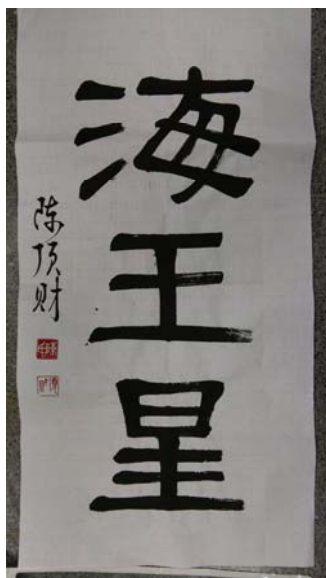 海王星
陈顶财